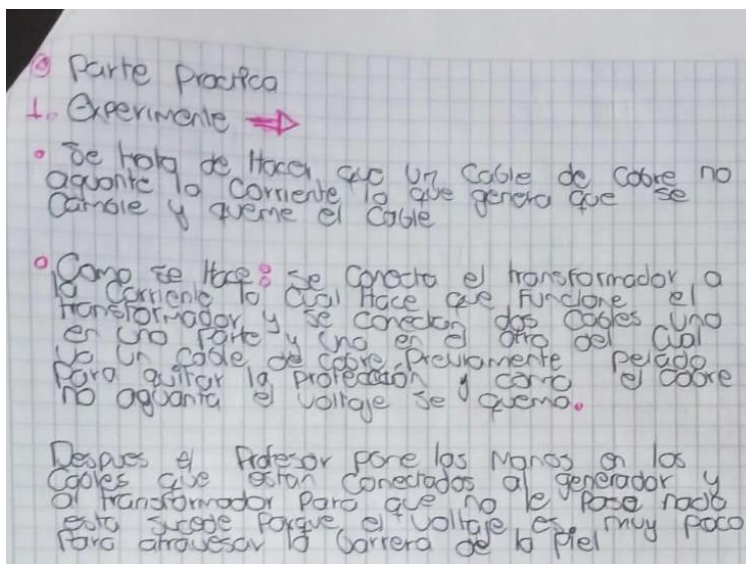 Parte Practica
1. Experimente →
• Se trata de Hacer que un Cable de Cobre no
aguante la Corriente lo que genera que se
Cambie y queme el Cable
• Como se Hace: se Conecta el transformador a
la Corriente lo Cual Hace que Funcione el
transformador y se Conectan dos Cables uno
en una Parte y uno en el otro del Cual
va un Cable de Cobre Previamente Pelado
Para quitar la Protección y como el Cobre
no aguanta el voltaje se quema.
Despues el Profesor pone las Manos en los
Cables que estan Conectados al generador y
al transformador Para que no le Pase nada
esto sucede Porque el voltaje es muy poco
Para atravesar la barrera de la Piel